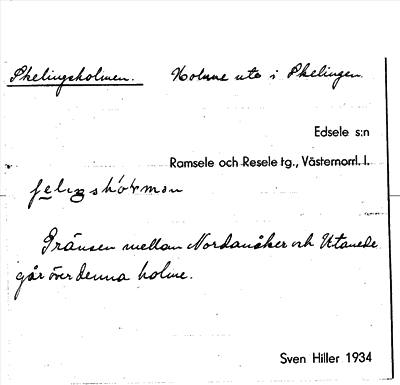 Skelingsholmen. Holme ute i Skelingen.
Edsele s:n
Ramsele och Resele tg., Västernorrl. l.
Gränsen mellan Nordanåker och Utanede
går över denna holme.
Sven Hiller 1934